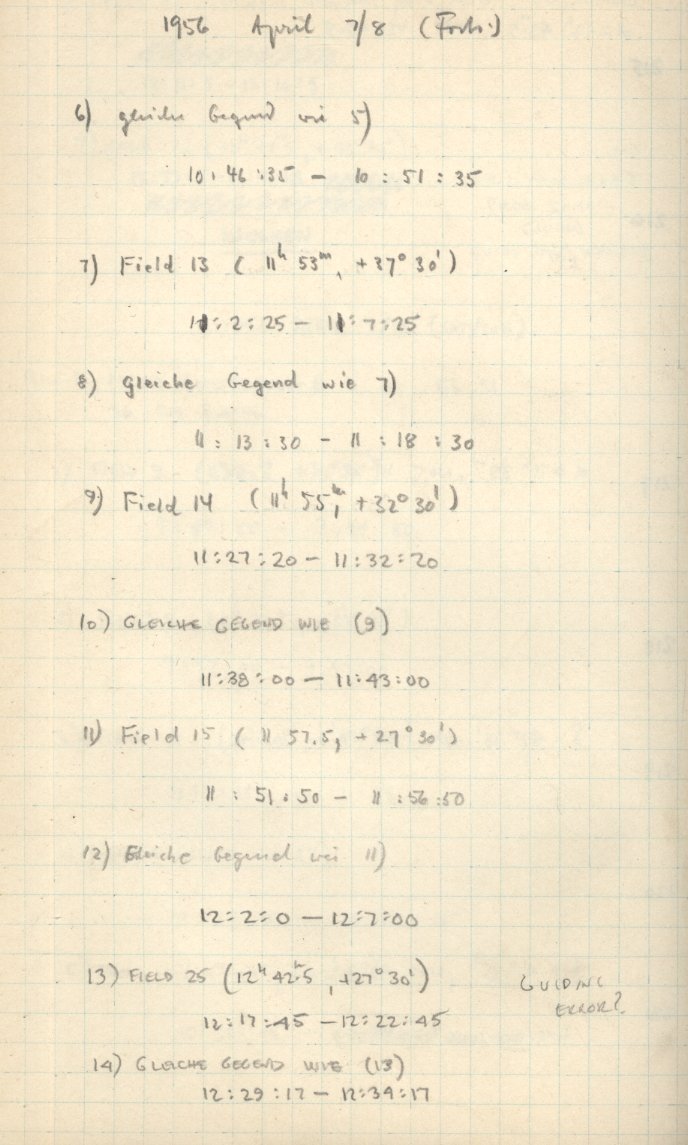 1956 April 7/8 (Forts.)
6) gleiche Gegend wie 5)
10:46:35 — 10:51:35
7) Field 13 (11ʰ 53ᵐ, +37° 30')
11:2:25 — 11:7:25
8) Gleiche Gegend wie 7)
11:13:30 — 11:18:30
9) Field 14 (11ʰ 55ᵐ, +32° 30')
11:27:20 — 11:32:20
10) GLEICHE GEGEND WIE (9)
11:38:00 — 11:43:00
11) Field 15 (11 57.5, +27° 30')
11:51:50 — 11:56:50
12) Gleiche Gegend wei 11)
12:2:0 — 12:7:00
13) FIELD 25 (12ʰ 42ᵐ.5, +27° 30')
GUIDING
ERROR?
12:17:45 — 12:22:45
14) GLEICHE GEGEND WIE (13)
12:29:17 — 12:34:17